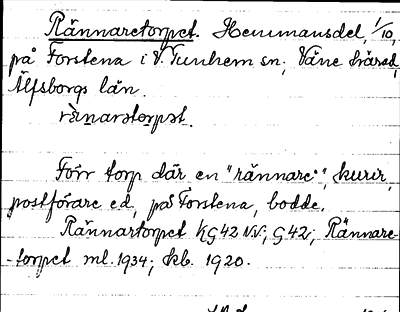 Rännaretorpet. Hemmansdel, 1/10,
på Forstena i V. Tunhem sn, Väne härad,
Älfsborgs län.
rä̀narstorpst.
Förr torp där en "rännare", kurir,
postförare ed, på Forstena, bodde.
Rännartorpet KG42 N.V.; G42; Rännare-
-torpet ml. 1934; kb. 1920.